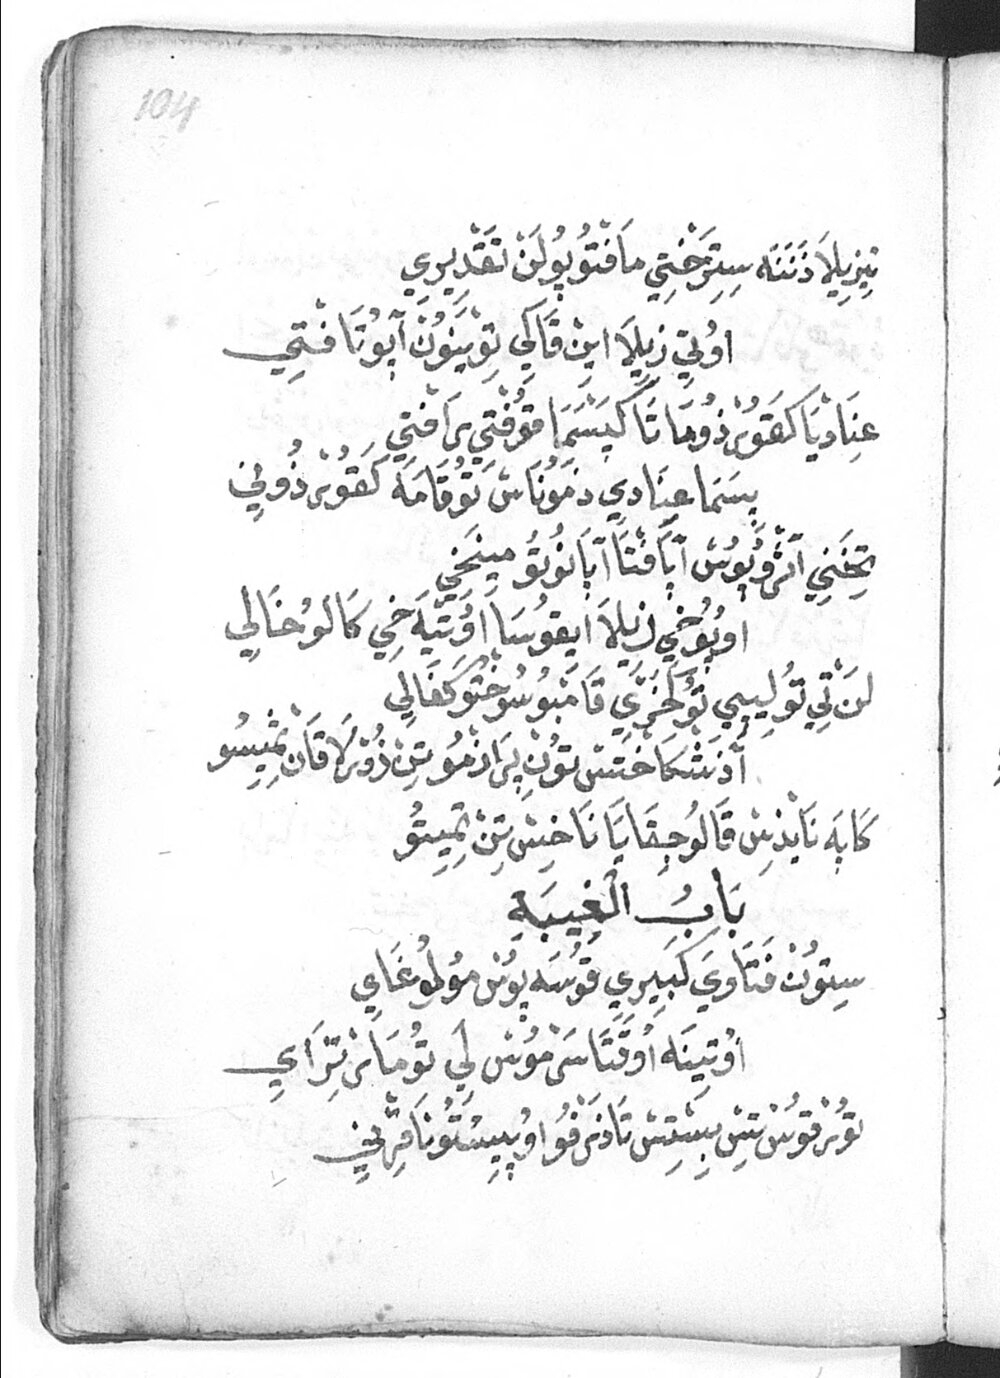 104
تِيزِيلَا ذَنَنَه سِتِرَخْتِي مَافْتُو پُولَنْ تَقْدِيرِي
اوُتِي زِيلَا اينْ قَاكِي تِوْيَنوُنْ آپوُتَا فْتِي
عِنَادْيَا كَقوُرْذُومَاتَا كَيَسْمَا قوُرْفْتِي رَافْتِي
بِسَمَا عِنَادِي ذَموُنَاسْ تَوُقَامَه كَقوُرْذُوني
تِخَنِي آنْثْرُوپوُسْ آپَافْتَا آپَانوُتوُ مِينَخِي
اوپوُخِي زِيلَا ايقوُسَا اوُتِيَه خِي كَالوُخَالِي
لَنْتِي توُلِيپِي توُخَرِي قَامْبوُسوُختوُ كَفَالِي
آذِنَسْكَاخَتِسْ توُنْ پِرَاذْموُسْتِنْ ذُوُرْلَا قَانْ تِمِيسُو
كَاپَه نَايْذِسْ قَالوُجِقَايَا نَاخِسْ تِنْ تِمِيتوُ
بَابُ الْغِيبَةِ
سِتوُتْ فَتَاوِيَ كَبِيرِي قوُسَه پوُسْ موُلوُغَايِ
اوُتِينَه اوُقَتَاسَرْموُسْ لِي توُمَاسْتِرَايِ
توُرْقوُسْ تِسْ پِسْتِسْ تَاذَرْفوُ اوپِيسْتوُنَا فِرْنِي